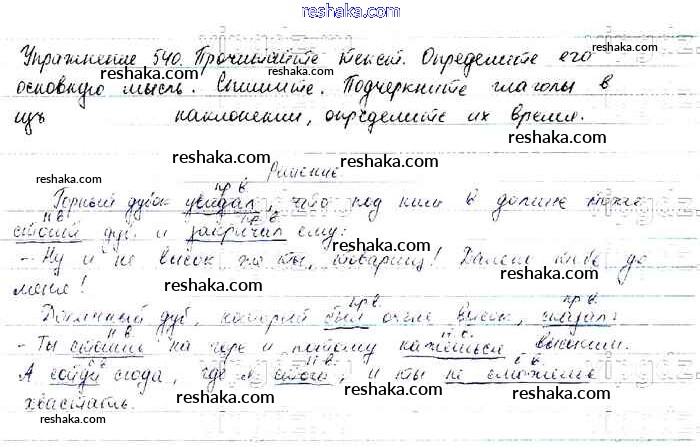 reshaka.com
Упражнение 540. Прочитайте текст. Определите его
reshaka.com
reshaka.com
основную мысль. Спишите. Подчеркните глаголы в
reshaka.com
изъ наклонении, определите их время.
reshaka.com
reshaka.com
Решение
reshaka.com
пр в.
Горный дуб увидал, что под ним в долине тоже
н в. пр в.
стоит дуб и закричал ему:
reshaka.com
reshaka.com
- Ну и не высок же ты, товарищ! Далеко тебе до
меня!
reshaka.com
reshaka.com
пр в. пр в.
Долинный дуб, который был очень высок, сказал:
reshaka.com
н в. н в.
- Ты стоишь на горе и потому кажешься высоким.
reshaka.com
н в. б в.
А сойди сюда, где я стою, и ты не сможешь
reshaka.com
reshaka.com
хвастать.
reshaka.com